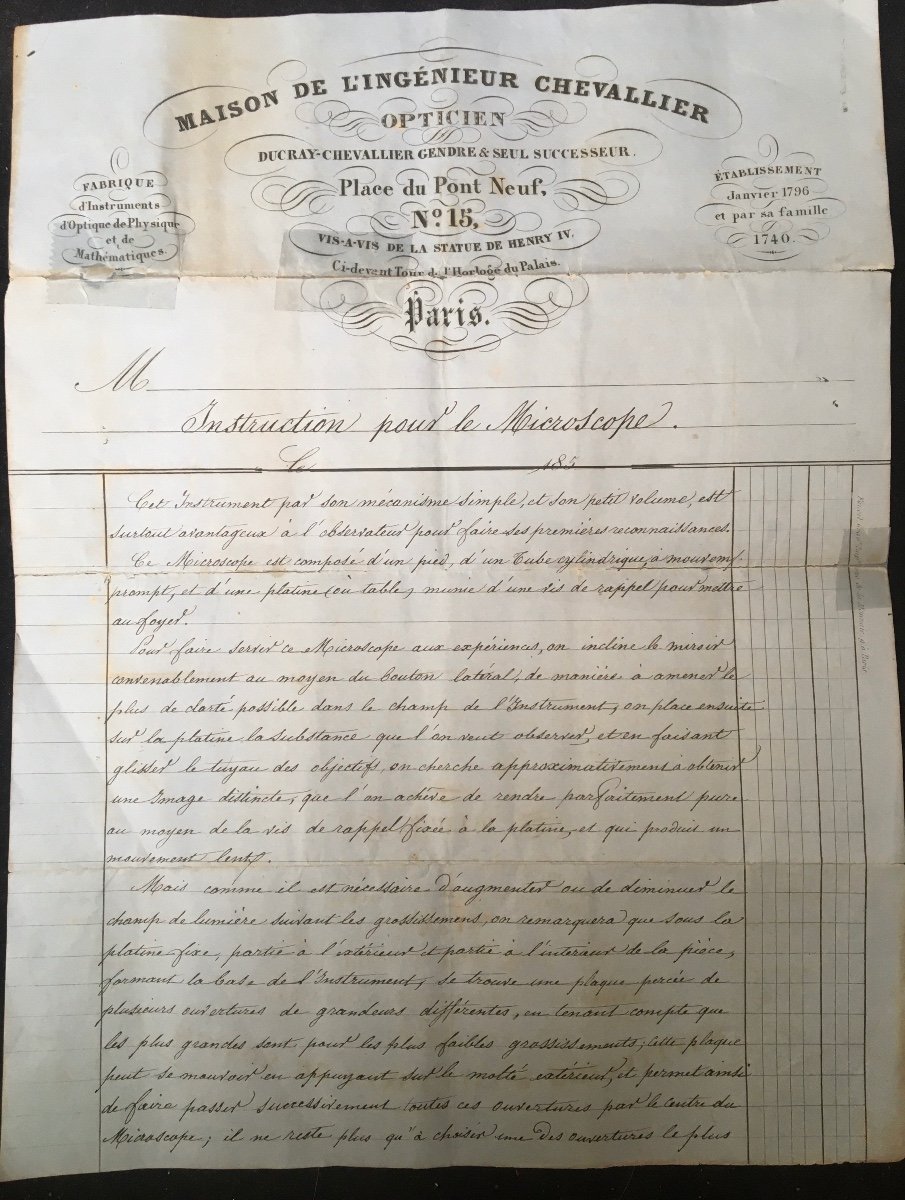 MAISON DE L'INGÉNIEUR CHEVALLIER
OPTICIEN
DUCRAY-CHEVALLIER GENDRE & SEUL SUCCESSEUR.
Place du Pont Neuf,
No. 15,
VIS-A-VIS DE LA STATUE DE HENRY IV.
Ci-devant Tour de l'Horloge du Palais.
Paris.
FABRIQUE
d'Instruments
d'Optique de Physique
et de
Mathématiques.
ÉTABLISSEMENT
Janvier 1796
et par sa famille
1740.
M
Instruction pour le Microscope.
Le 185
Cet Instrument par son mécanisme simple, et son petit volume, est
surtout avantageux à l'observateur pour faire ses premières reconnaissances.
Ce Microscope est composé d'un pied, d'un Tube cylindrique, à mouvemt.
prompt, et d'une platine (ou table, munie d'une vis de rappel) pour mettre
au foyer.
Pour faire servir ce Microscope aux expériences, on incline le miroir
convenablement au moyen du bouton latéral, de manière à amener le
plus de clarté possible dans le champ de l'Instrument, on place ensuite
sur la platine la substance que l'on veut observer, et en faisant
glisser le tuyau des objectifs, on cherche approximativement à obtenir
une Image distincte, que l'on achève de rendre parfaitement pure
au moyen de la vis de rappel fixée à la platine, et qui produit un
mouvement lent.
Mais comme il est nécessaire d'augmenter ou de diminuer le
champ de lumière suivant les grossissemens, on remarquera que sous la
platine fixe, partie à l'extérieur et partie à l'intérieur de la pièce,
formant la base de l'Instrument, se trouve une plaque percée de
plusieurs ouvertures de grandeurs différentes, en tenant compte que
les plus grandes sont pour les plus faibles grossissements; cette plaque
peut se mouvoir en appuyant sur le molté extérieur, et permet ainsi
de faire passer successivement toutes ces ouvertures par le centre du
Microscope; il ne reste plus qu'à choisir une des ouvertures le plus